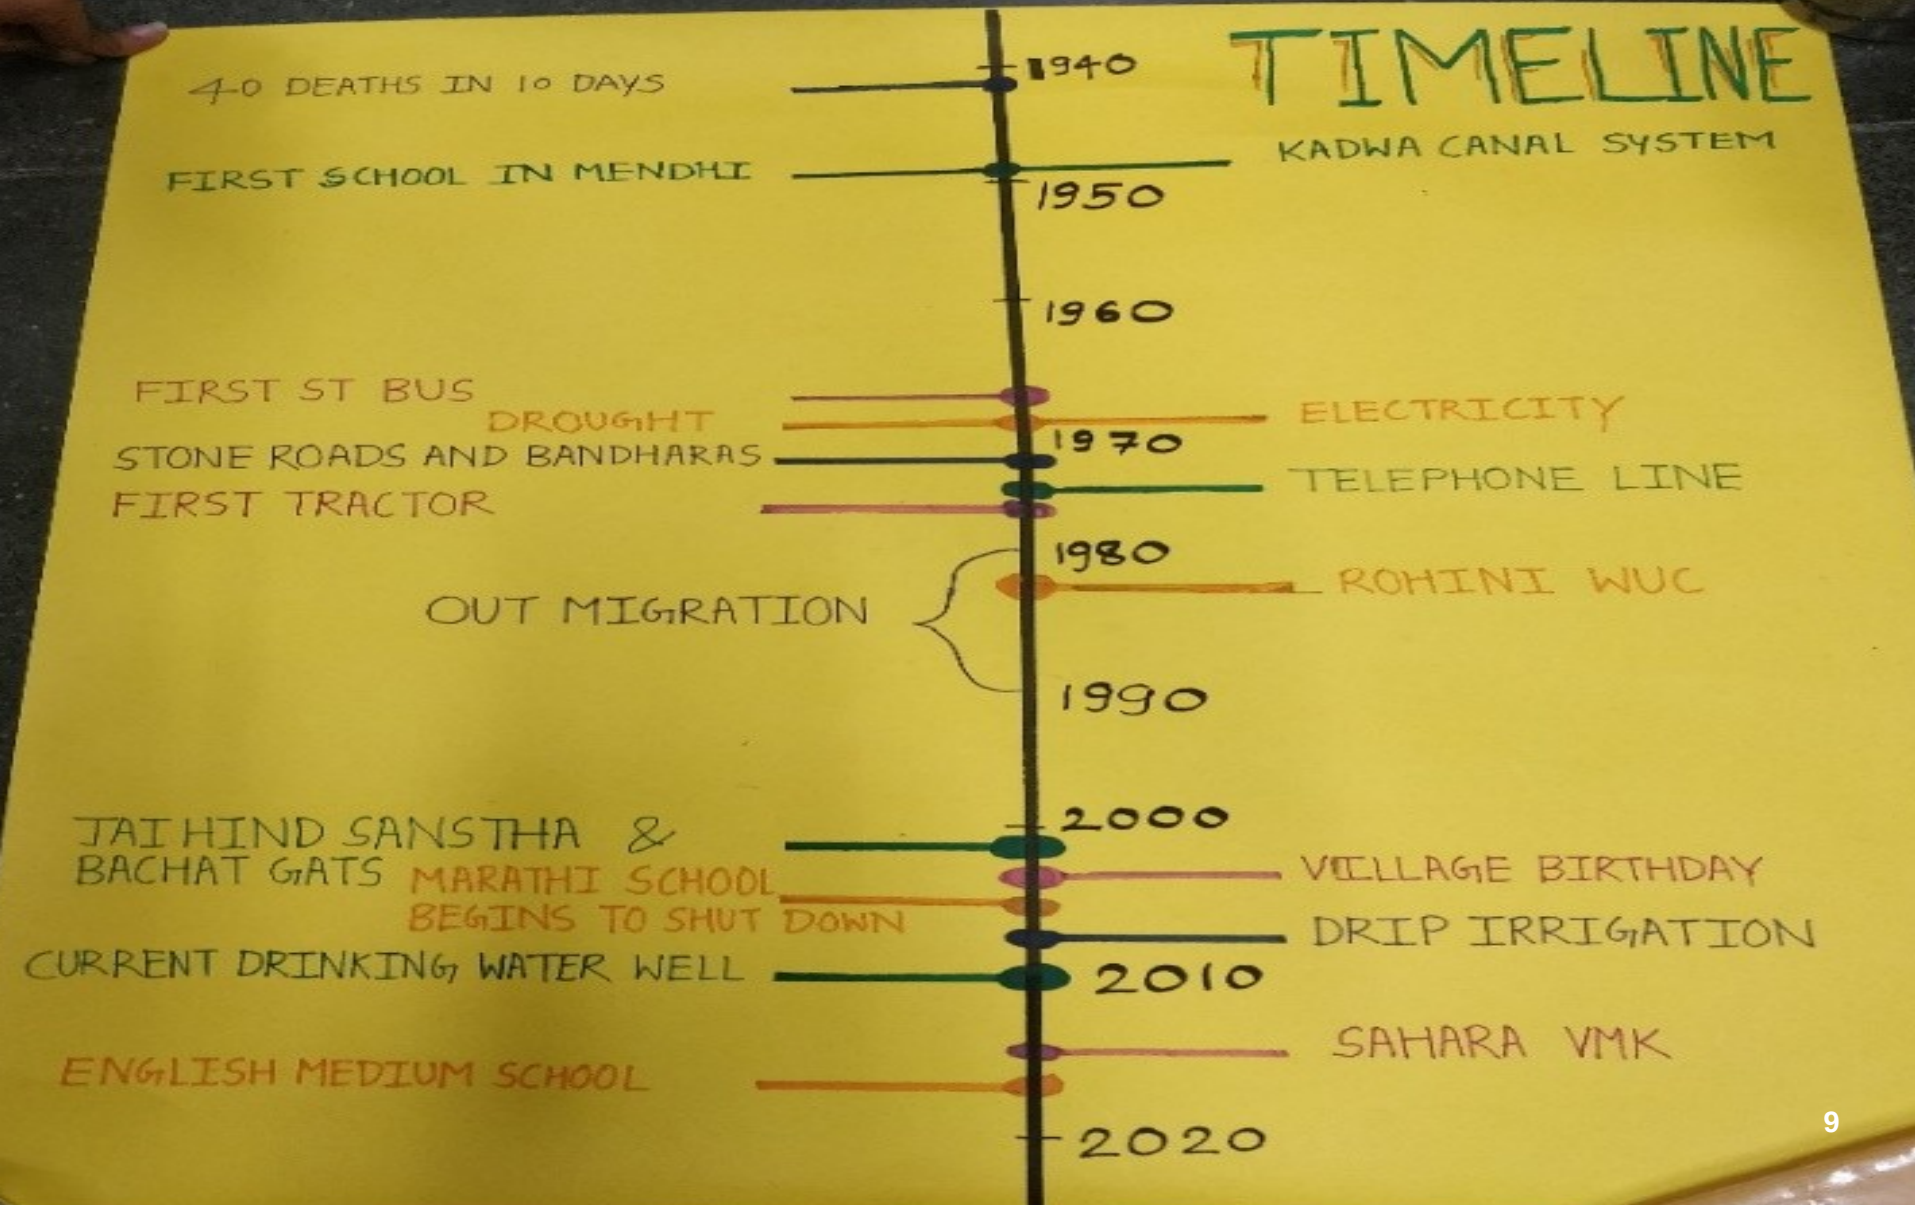 TIMELINE
1940
40 DEATHS IN 10 DAYS
KADWA CANAL SYSTEM
FIRST SCHOOL IN MENDHI
1950
1960
FIRST ST BUS
DROUGHT
ELECTRICITY
1970
STONE ROADS AND BANDHARAS
TELEPHONE LINE
FIRST TRACTOR
1980
ROHINI WUC
OUT MIGRATION
1990
2000
JAI HIND SANSTHA &
BACHAT GATS
VILLAGE BIRTHDAY
MARATHI SCHOOL
BEGINS TO SHUT DOWN
DRIP IRRIGATION
CURRENT DRINKING WATER WELL
2010
SAHARA VMK
ENGLISH MEDIUM SCHOOL
2020
9